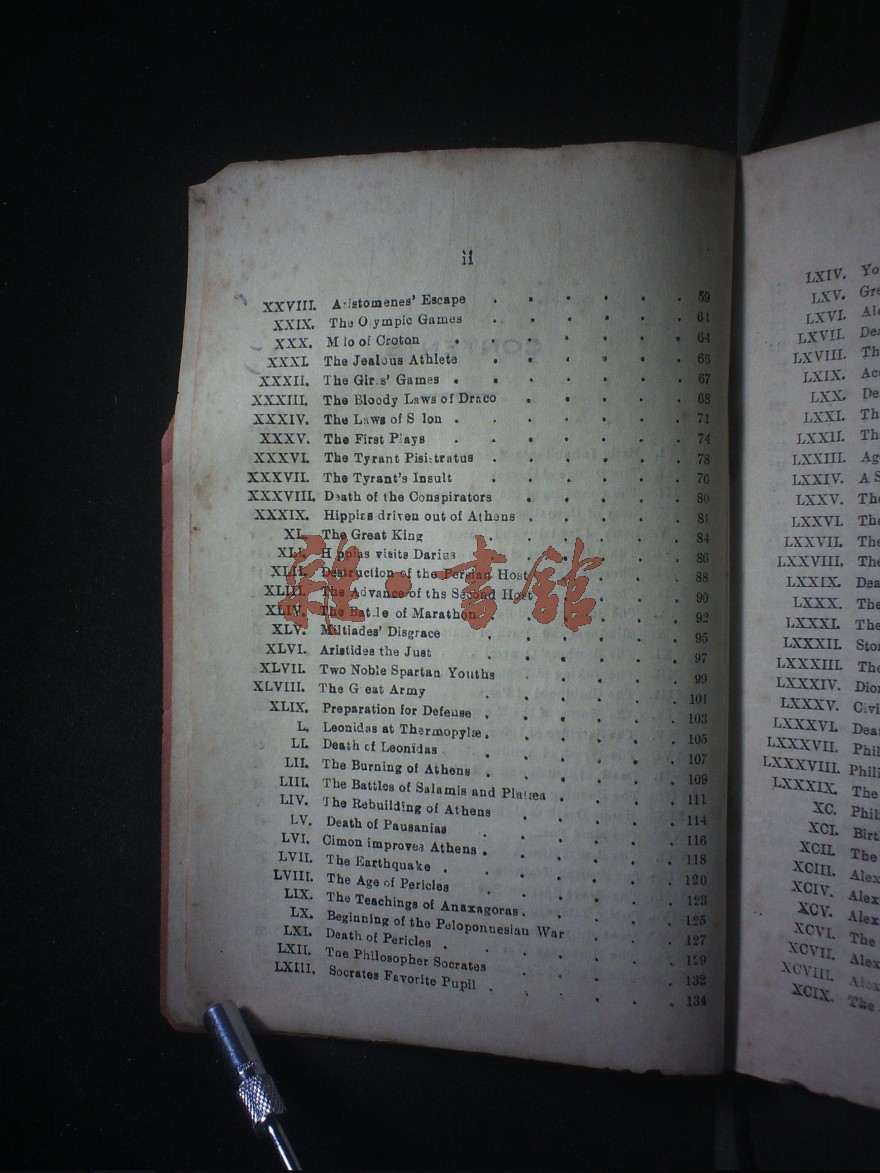 ii
XXVIII. Aristomenes' Escape . . . . . . 59
XXIX. The Olympic Games . . . . . . 61
XXX. Milo of Croton . . . . . . . 64
XXXI. The Jealous Athlete . . . . . . 66
XXXII. The Girls' Games . . . . . . . 67
XXXIII. The Bloody Laws of Draco . . . . . 68
XXXIV. The Laws of Solon . . . . . . . 71
XXXV. The First Plays . . . . . . . 74
XXXVI. The Tyrant Pisistratus . . . . . . 78
XXXVII. The Tyrant's Insult . . . . . . 76
XXXVIII. Death of the Conspirators . . . . . 80
XXXIX. Hippias driven out of Athens . . . . . 81
XL. The Great King . . . . . . 84
XLI. Hippias visits Darius . . . . . . 86
XLII. Destruction of the Persian Host . . . . 88
XLIII. The Advance of ths Second Host . . . . 90
XLIV. The Battle of Marathon . . . . . . 92
XLV. Miltiades' Disgrace . . . . . . 95
XLVI. Aristides the Just . . . . . . 97
XLVII. Two Noble Spartan Youths . . . . . 99
XLVIII. The Great Army . . . . . . 101
XLIX. Preparation for Defense . . . . . . 103
L. Leonidas at Thermopylæ . . . . . . 105
LI. Death of Leonidas . . . . . . 107
LII. The Burning of Athens . . . . . . 109
LIII. The Battles of Salamis and Platæa . . . . 111
LIV. The Rebuilding of Athens . . . . . 114
LV. Death of Pausanias . . . . . . 116
LVI. Cimon improves Athens . . . . . . 118
LVII. The Earthquake . . . . . . . 120
LVIII. The Age of Pericles . . . . . . 123
LIX. The Teachings of Anaxagoras . . . . . 125
LX. Beginning of the Peloponnesian War . . . 127
LXI. Death of Pericles . . . . . . . 129
LXII. The Philosopher Socrates . . . . . 132
LXIII. Socrates Favorite Pupil . . . . . . 134
LXIV.
LXV.
LXVI.
LXVII.
LXVIII.
LXIX.
LXX.
LXXI.
LXXII.
LXXIII.
LXXIV. A
LXXV. The
LXXVI. The
LXXVII. The
LXXVIII. The
LXXIX.
LXXX. The
LXXXI. The
LXXXII.
LXXXIII. The
LXXXIV.
LXXXV.
LXXXVI.
LXXXVII.
LXXXVIII.
LXXXIX. The
XC.
XCI.
XCII. The
XCIII.
XCIV.
XCV.
XCVI. The
XCVII.
XCVIII.
XCIX. The
雅·書館